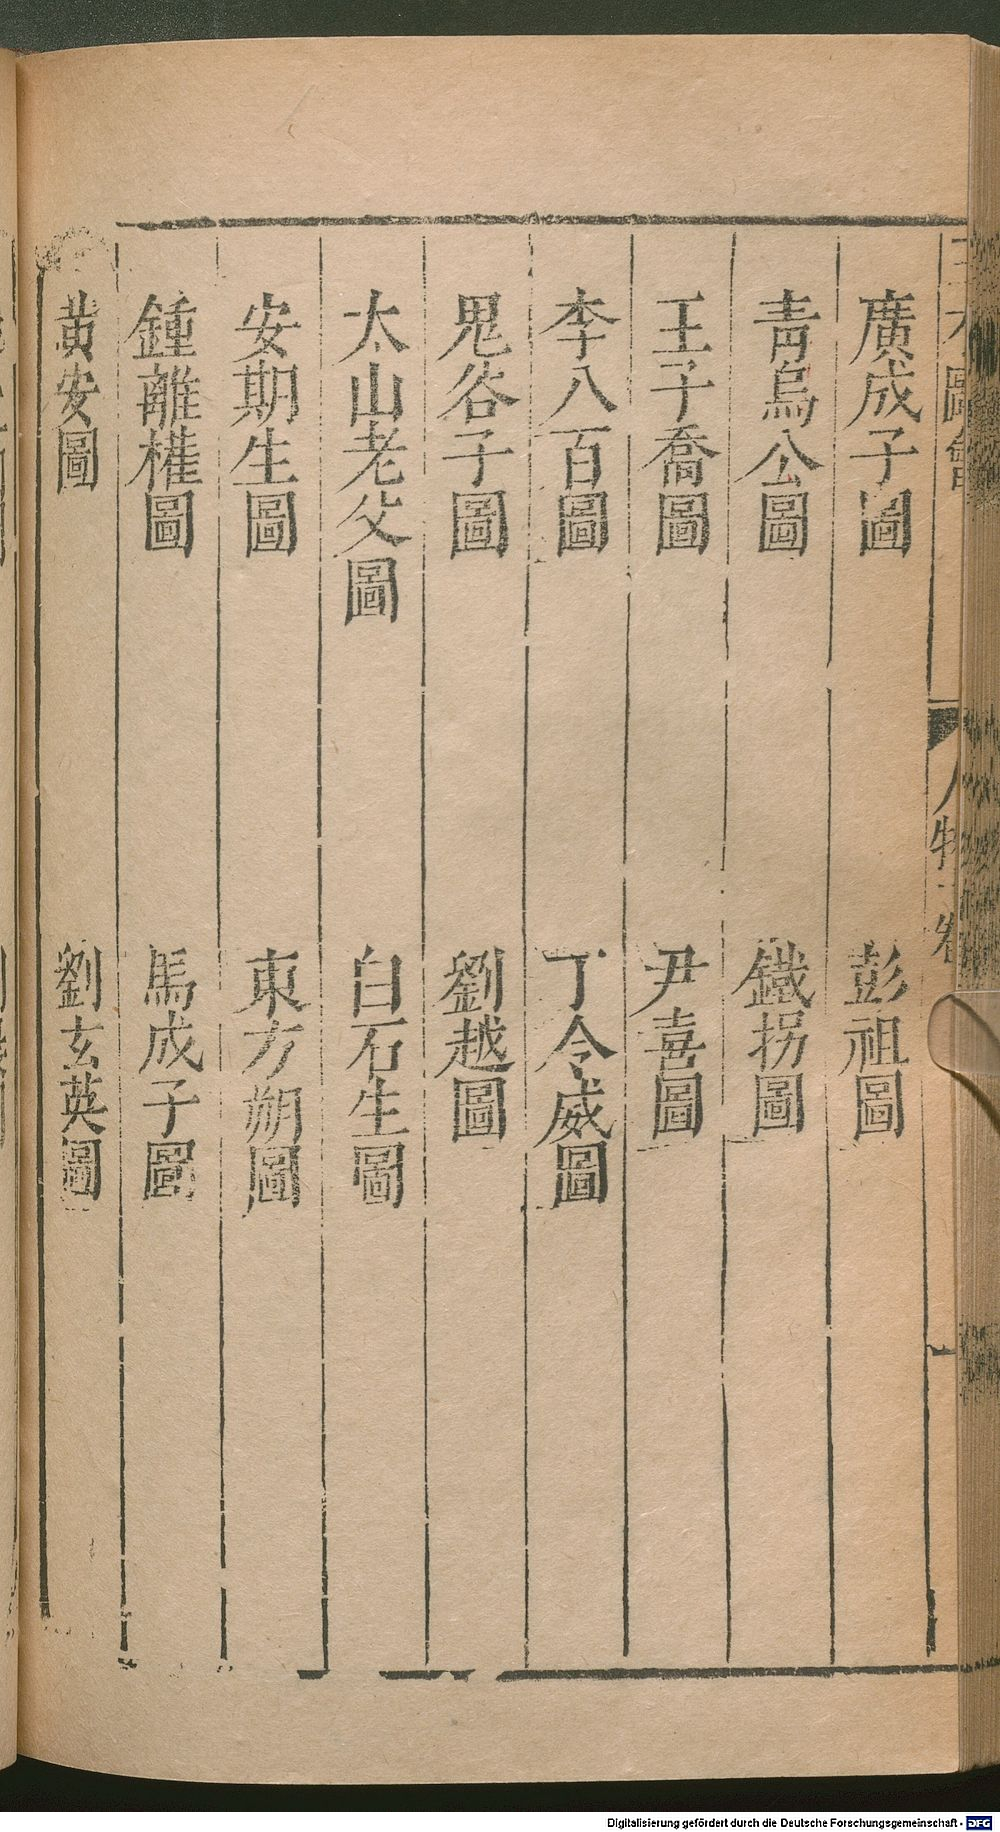 廣成子圖
彭祖圖
青烏公圖
鐵拐圖
王子喬圖
尹喜圖
李八百圖
丁令威圖
鬼谷子圖
劉越圖
太山老父圖
白石生圖
安期生圖
東方朔圖
鍾離權圖
馬成子圖
黄安圖
劉玄英圖
Digitalisierung gefördert durch die Deutsche Forschungsgemeinschaft - DFG